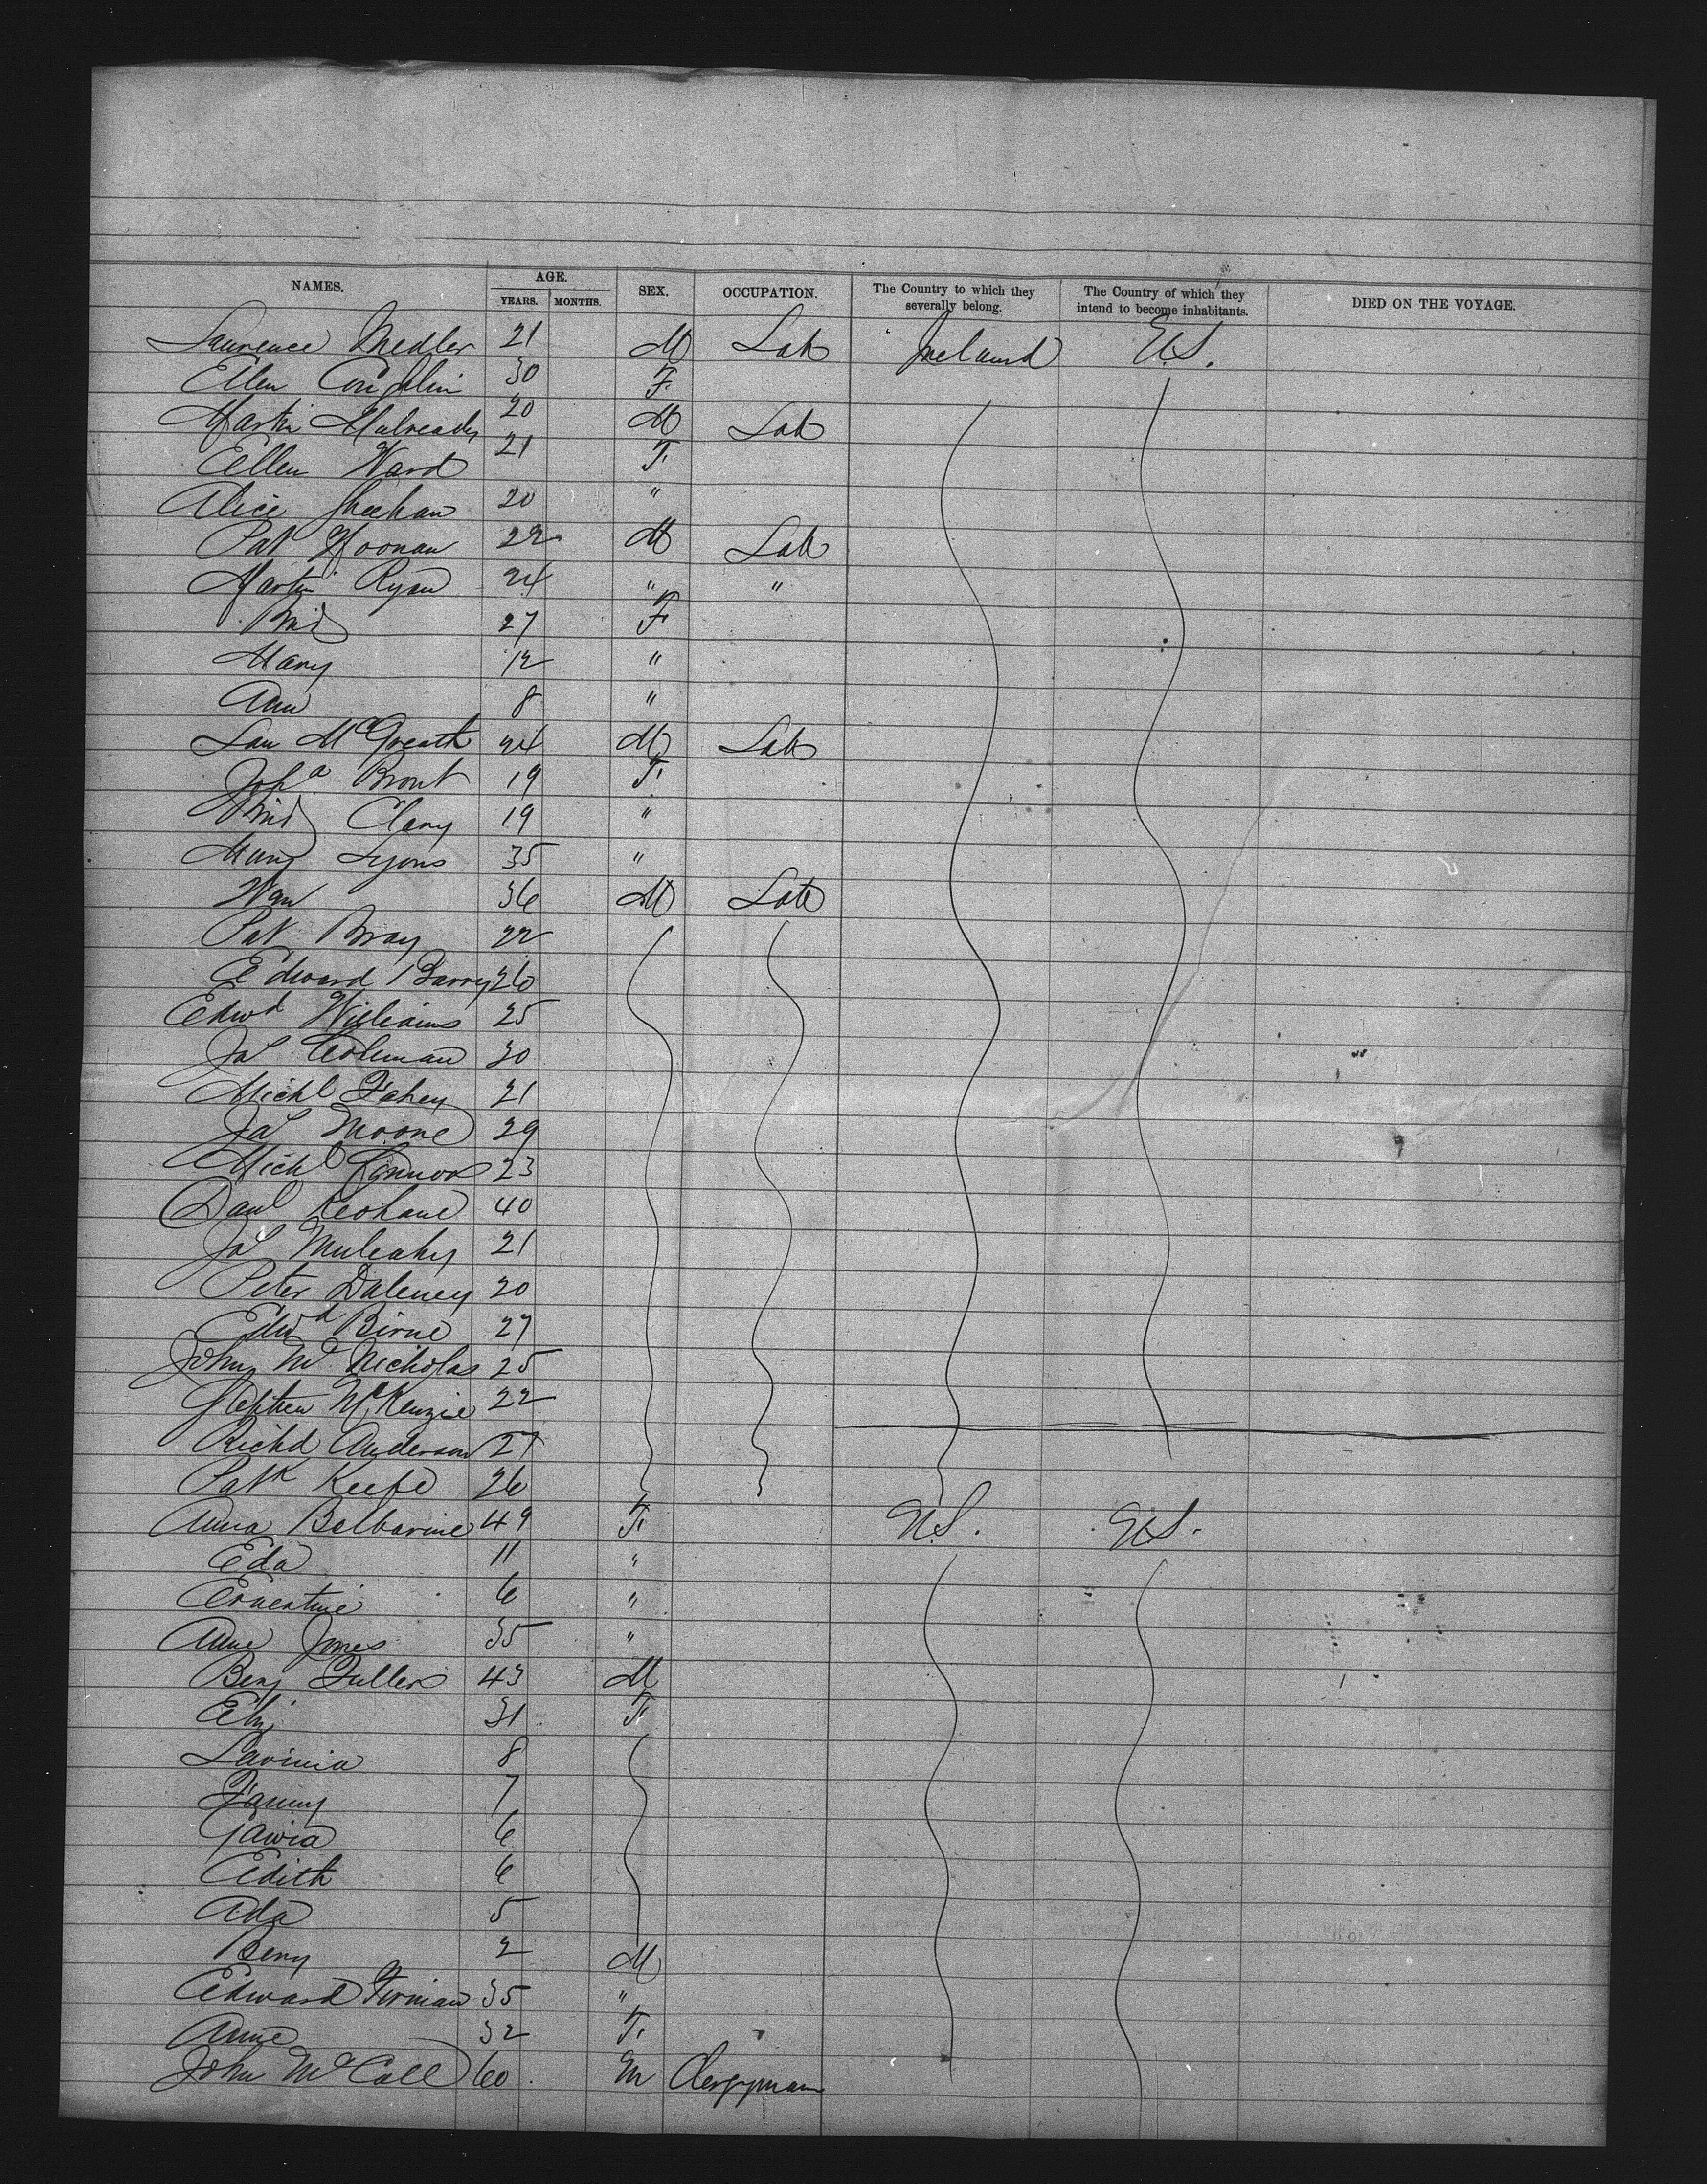 NAMES. AGE. YEARS. MONTHS. SEX. OCCUPATION. The Country to which they severally belong. The Country of which they intend to become inhabitants. DIED ON THE VOYAGE.
Laurence Medler 21 M Lab Ireland U.S.
Ellen Coughlin 30 F
Martin Mulready 20 M Lab
Ellen Ward 21 F
Alice Sheehan 20 "
Pat Noonan 22 M Lab
Martin Ryan 24 " "
Brid 27 F
Mary 12 "
Ann 8 "
Lau McGreath 24 M Lab
Joha Bront 19 F
Brid Clary 19 "
Mary Lyons 35 "
Wm 36 M Lab
Pat Bray 22
Edward Barry 26
Edwd Williams 25
Jas Coleman 30
Michl Fahey 21
Jas Moore 29
Michl Connors 23
Danl Keohane 40
Jas Mulcahy 21
Peter Daleney 20
Edwd Birne 27
John McNicholas 25
Stephen McKenzie 22
Richd Anderson 27
Patk Keefe 26
Anna Balbarine 49 F U.S. U.S.
Eda 11 "
Ernestine 6 "
Anne Jones 35 "
Benj Fuller 43 M
Eliz 31 F
Lavinia 8
Fanny 7
6
Edith 6
Ada 5
Benj 2 M
Edward Firman 35 "
Anne 32 F
John McCall 60 M Clergyman